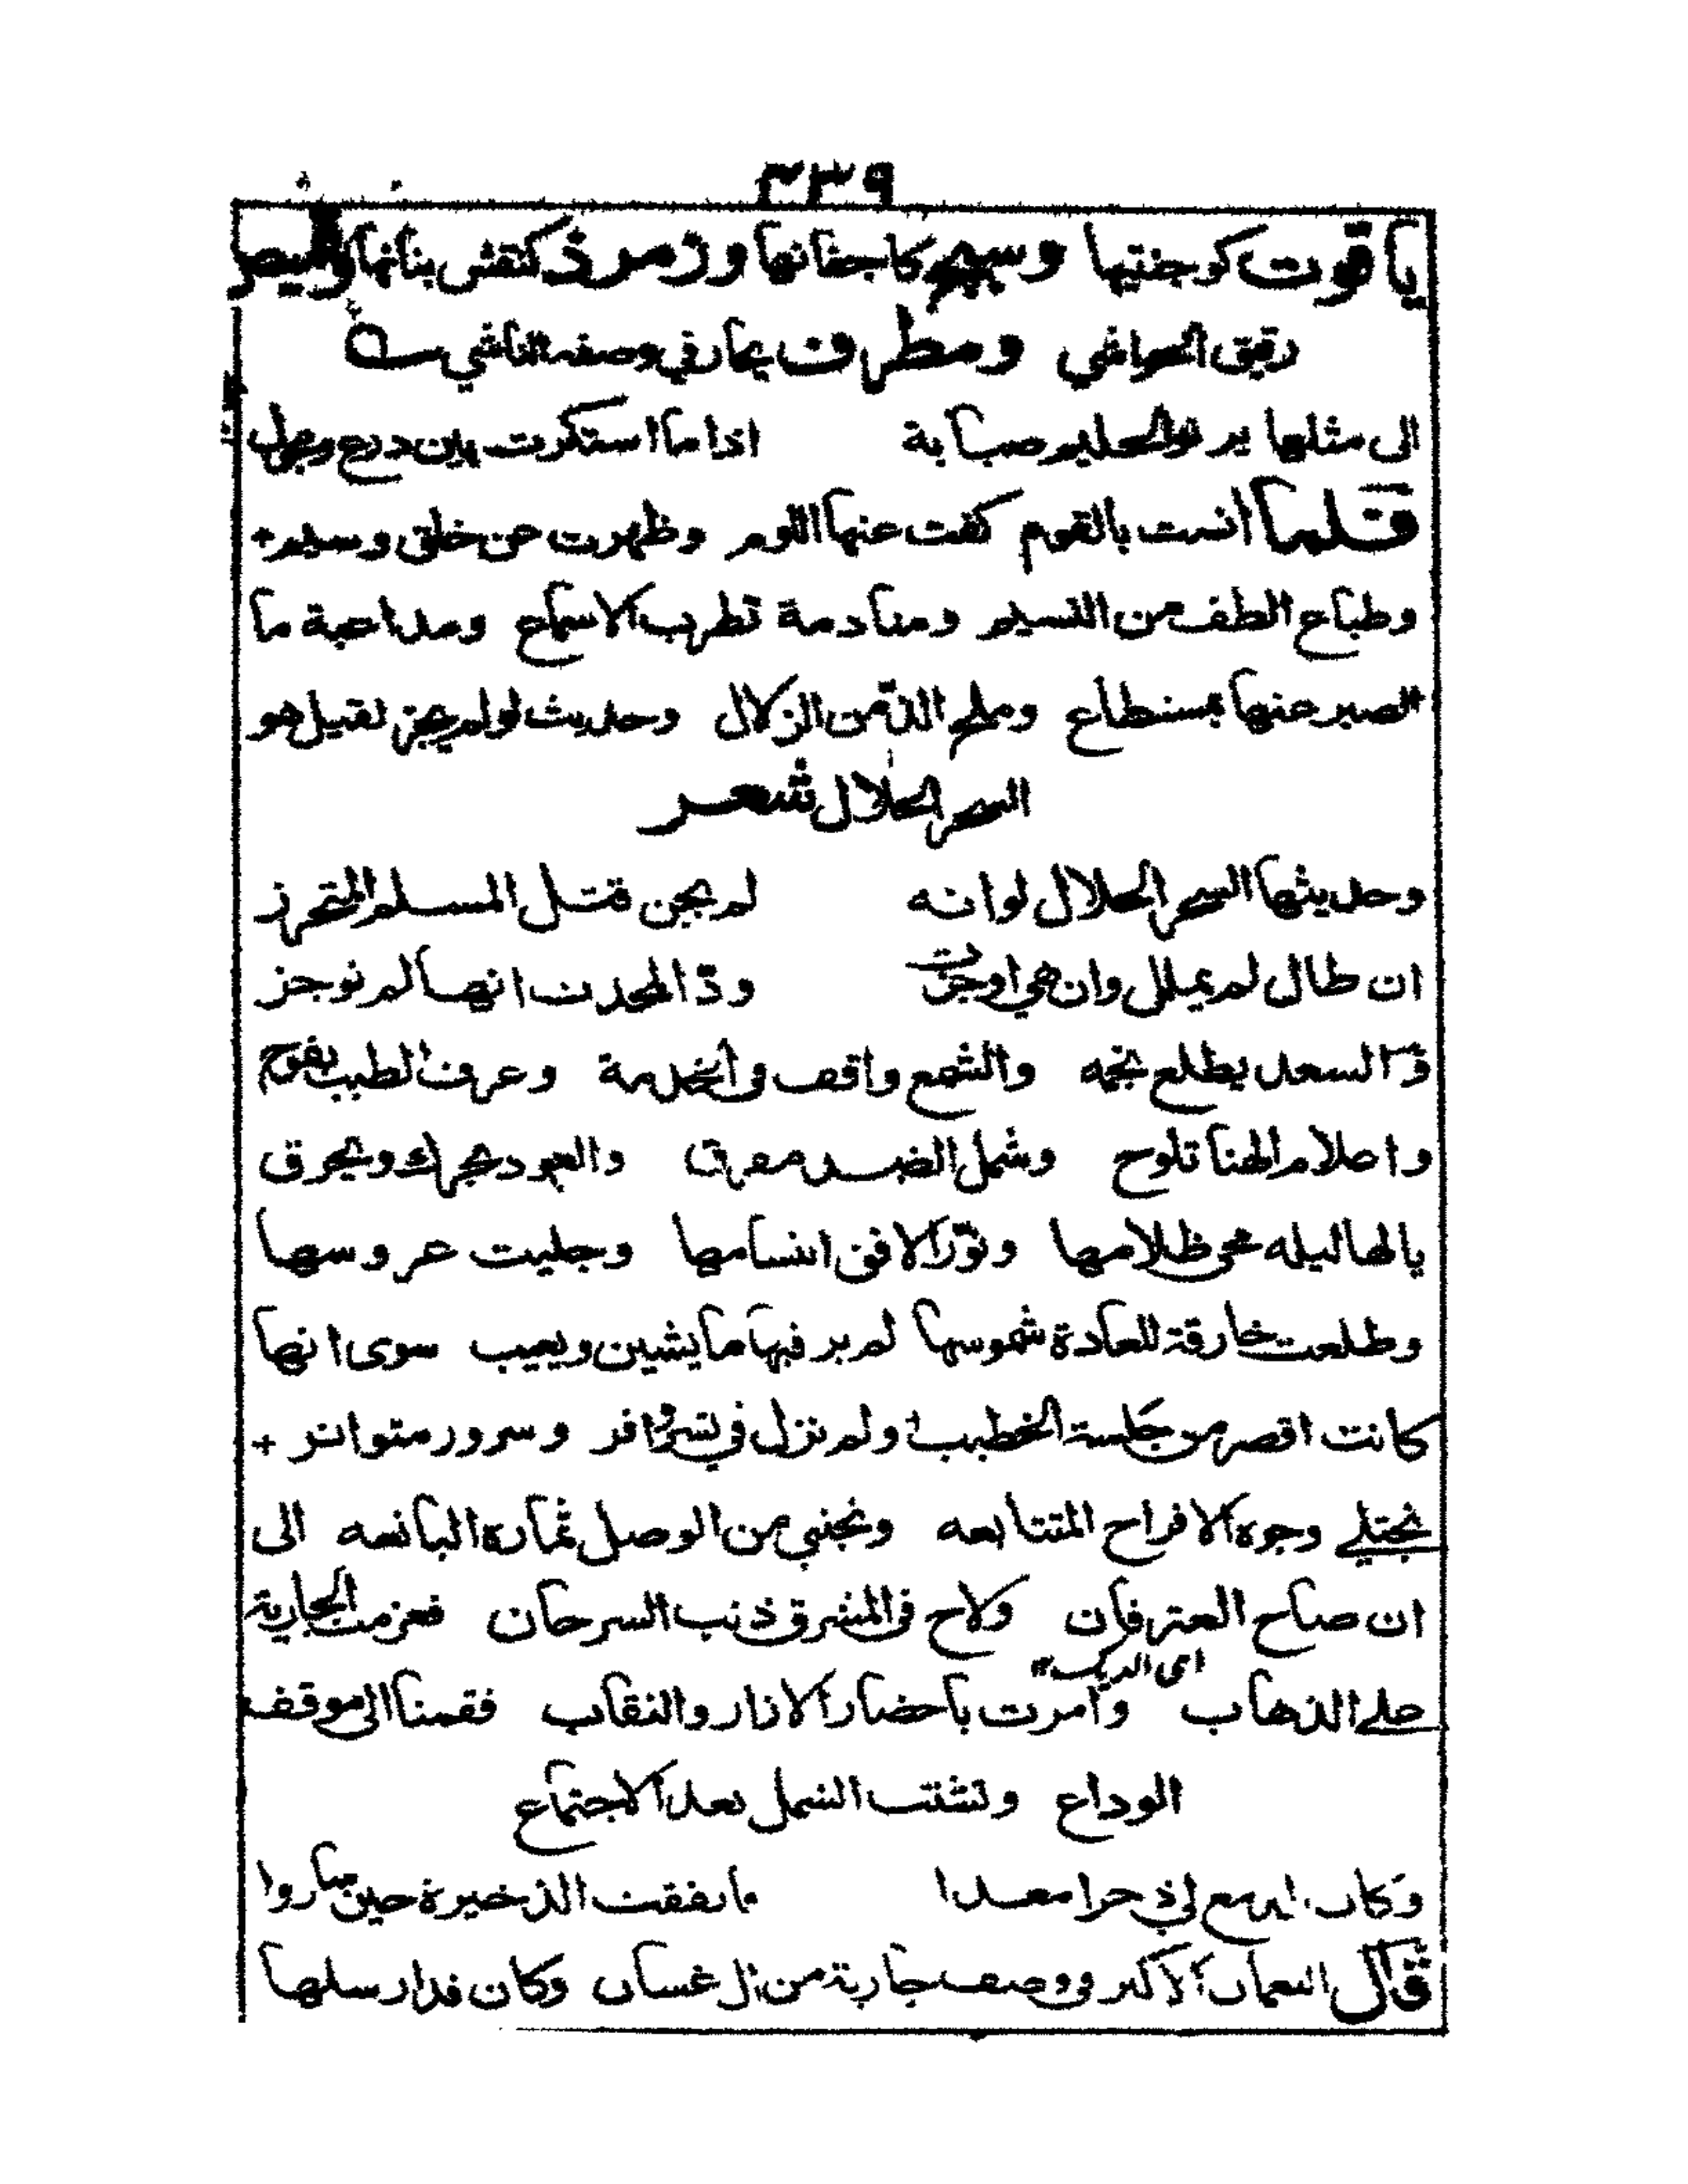 ٣٣٩
ياقوت كوجنتيها وسبج كاجفانها وزمرذ كنقش بنانها وقميص
رقيق الحواشي ومطرف يحار في وصفه الناشي
الى مثلها يرنو الحليم صبابة اذا ما استكرت بين درع ومجول
فلما انست بالقوم كفت عنها اللوم وظهرت عن خلق وسيم
وطباع الطف من النسيم ومنادمة تطرب الاسماع ومداعبة ما
الصبر عنها بمستطاع وملح الذ من الزلال وحديث لو لم يجز لقيل هو
السحر الحلال شعر
وحديثها السحر الحلال لو انه لم يجن قتل المسلم المتحرز
ان طال لم يملل وان هي اوجزت ودّ المحدث انها لم توجز
هذا والسعد يطلع نجمه والشمع واقف في الخدمة وعرف الطيب يفوح
واعلام الهنا تلوح وشمل الضد مفرق والعود يحرك ويحرق
يالها ليله محي ظلامها ونوّر الافق ابتسامها وجليت عروسها
وطلعت خارقة للعادة شموسها لم ير فيها ما يشين ويعيب سوى انها
كانت اقصر من جلسة الخطيب ولم نزل في بشر وافر وسرور متواتر
نجتلي وجوه الافراح المتتابعه ونجتني من الوصل ثماره اليانعه الى
ان صاح العترفان ولاح في المشرق ذنب السرحان فعزمت الجارية
اى الديك
على الذهاب وامرت باحضار الازار والنقاب فقمنا الى موقف
الوداع وتشتت الشمل بعد الاجتماع
وكان الدمع لي ذخرا معدا فانفقت الذخيرة حين ساروا
قال النعمان الاكبر في وصف جارية من آل غسان وكان قد ارسلها